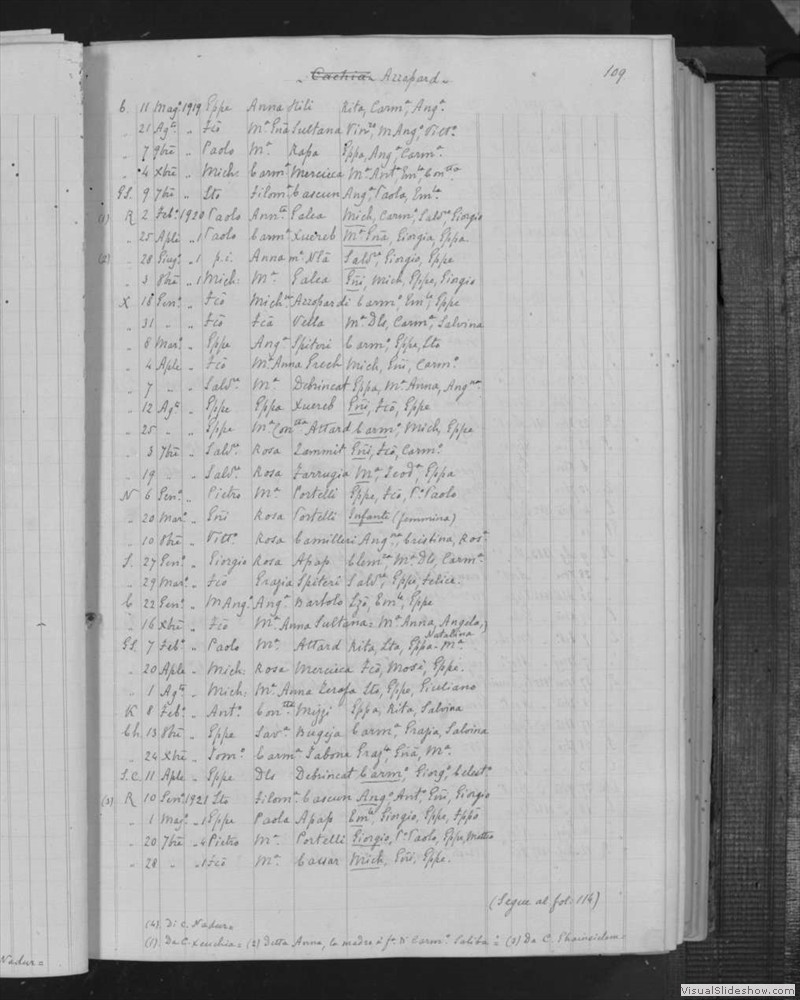 Cachia Azzopard 109
C. 11 Magº 1919 Eppe Anna Stiti Rita, Carmª, Angª.
" 21 Agº " Fcõ Mª Gnã Sultana Vinza, M Angº, Vittª.
" 7 9bre " Paolo Mª Rapa Eppa, Angª, Carmª.
" 4 Xbre " Mich: Carmª Mercieca Mª Antª, Emla, Contta
GS. 9 7bre " Sto Filomª Cascun Angª, Paola, Emla.
(1) R 2 Febº 1920 Paolo Annta Galea Mich, Carmº, Salvª, Giorgio
" 25 Aple " 1 Paolo Carmª Xuereb Mª Gnã, Giorgia, Eppa
(2) " 28 Giugº " 1 p.i. Anna Salvª, Giorgio, Eppe
" 3 8bre " 1 Mich: Mª Galea Gñi, Mich, Eppe, Giorgio
X 18 Genº " Fcõ Michna Azzopardi Carmº, Emle, Eppe
" 31 " " Fcõ Fcã Vella Mª Dls, Carmª, Salvina
" 8 Marº " Eppe Angª Spiteri Carmº, Eppe, Sto
" 4 Aple " Fcõ Mª Anna Grech Mich, Gñi, Carmº.
" 7 " " Salvre Mª Debrincat Eppa, Mª Anna, Angna
" 12 Agº " Eppe Eppa Xuereb Gñi, Fcõ, Eppe
" 25 " " Eppe Mª Contta Attard Carmº, Mich, Eppe
" 3 7bre " Salvre Rosa Zammit Gñi, Fcõ, Carmº.
" 19 " " Salvre Rosa Farrugia Mª, Teodª, Eppa
N 6 Genº " Pietro Mª Portelli Eppe, Fcõ, P. Paolo
" 20 Marº " Gñi Rosa Portelli Infante (femmina)
" 10 8bre " Vittº Rosa Camilleri Angna, Cristina, Rosª
S. 27 Genº " Giorgio Rosa Apap Clemza, Mª Dls, Carmª.
" 29 Marº " Fcõ Grazia Spiteri Salvre, Eppe, Felice.
C 22 Genº " M Angº Angª Bartolo Lzõ, Emle, Eppe
" 16 Xbre " Fcõ Mª Anna Sultana: Mª Anna, Angela,
Natalina
GS. 7 Febº " Paolo Mª Attard Rita, Sta, Eppa. Mª
" 20 Aple " Mich: Rosa Mercieca Fcõ, Mosè, Eppe.
" 1 Agº " Mich: Mª Anna Zerafa Sto, Eppe, Giuliano
K 8 Febº " Antº Contta Mizzi Eppa, Rita, Salvina
Ch. 13 8bre " Eppe Savª Bugeja Carmª, Grazia, Salvina
" 24 Xbre " Tomº Carmª Tabone Grazª, Gnã, Mª
S.C. 11 Aple " Eppe Dls Debrincat Carmº, Giorgº, Celestº
(3) R 10 Genº 1921 Sto Filomª Cascun Angº, Antº, Gñi, Giorgio
" 1 Magº " 1 Eppe Paola Apap Emla, Giorgio, Eppe,
" 20 7bre " 4 Pietro Mª Portelli Giorgio, P. Paolo, Eppe, Matteo
" 28 " " 1 Fcõ Mª Cassar Mich, Gñi, Eppe.
(Segue al fol: 114)
(4) Di C. Nadur=
(1) Da C. Xeuchia= (2) Detta Anna, la madre è fª. di Carmº Saliba= (3) Da C. Ghainsielem=
Nadur=
VisualSlideshow.com